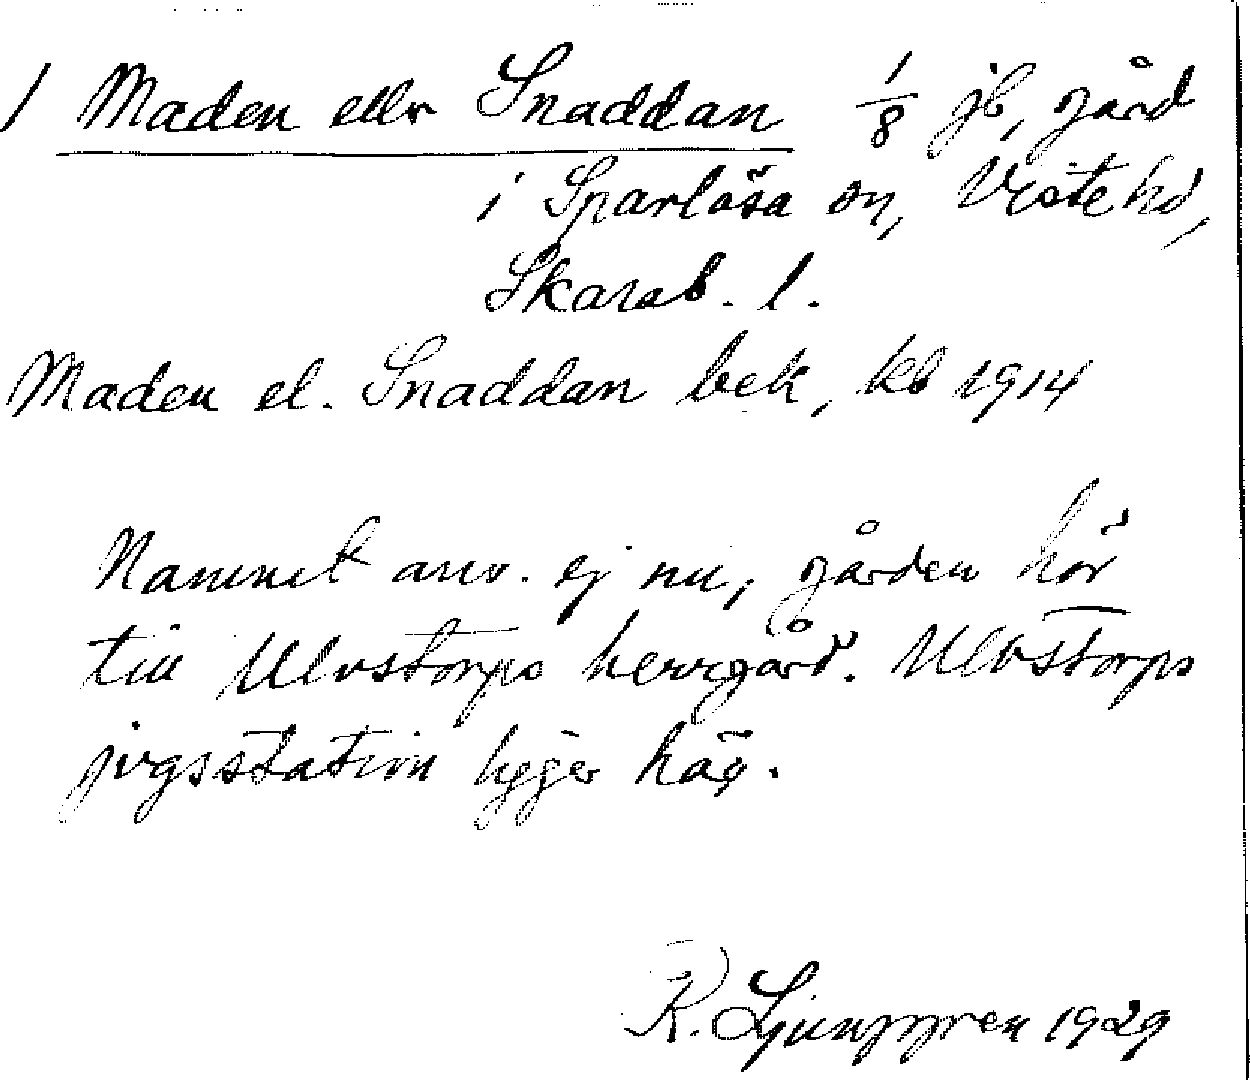 1 Maden eller Snaddan 1/8 jb, gård
i Sparlösa sn, Viste hd,
Skarab. l.
Maden el. Snaddan bek, kb 1914
Namnet anv. ej nu, gården hör
till Ulvstorps herrgård. Ulvstorps
jvgsstation ligger här.
K. Ljunggren 1929